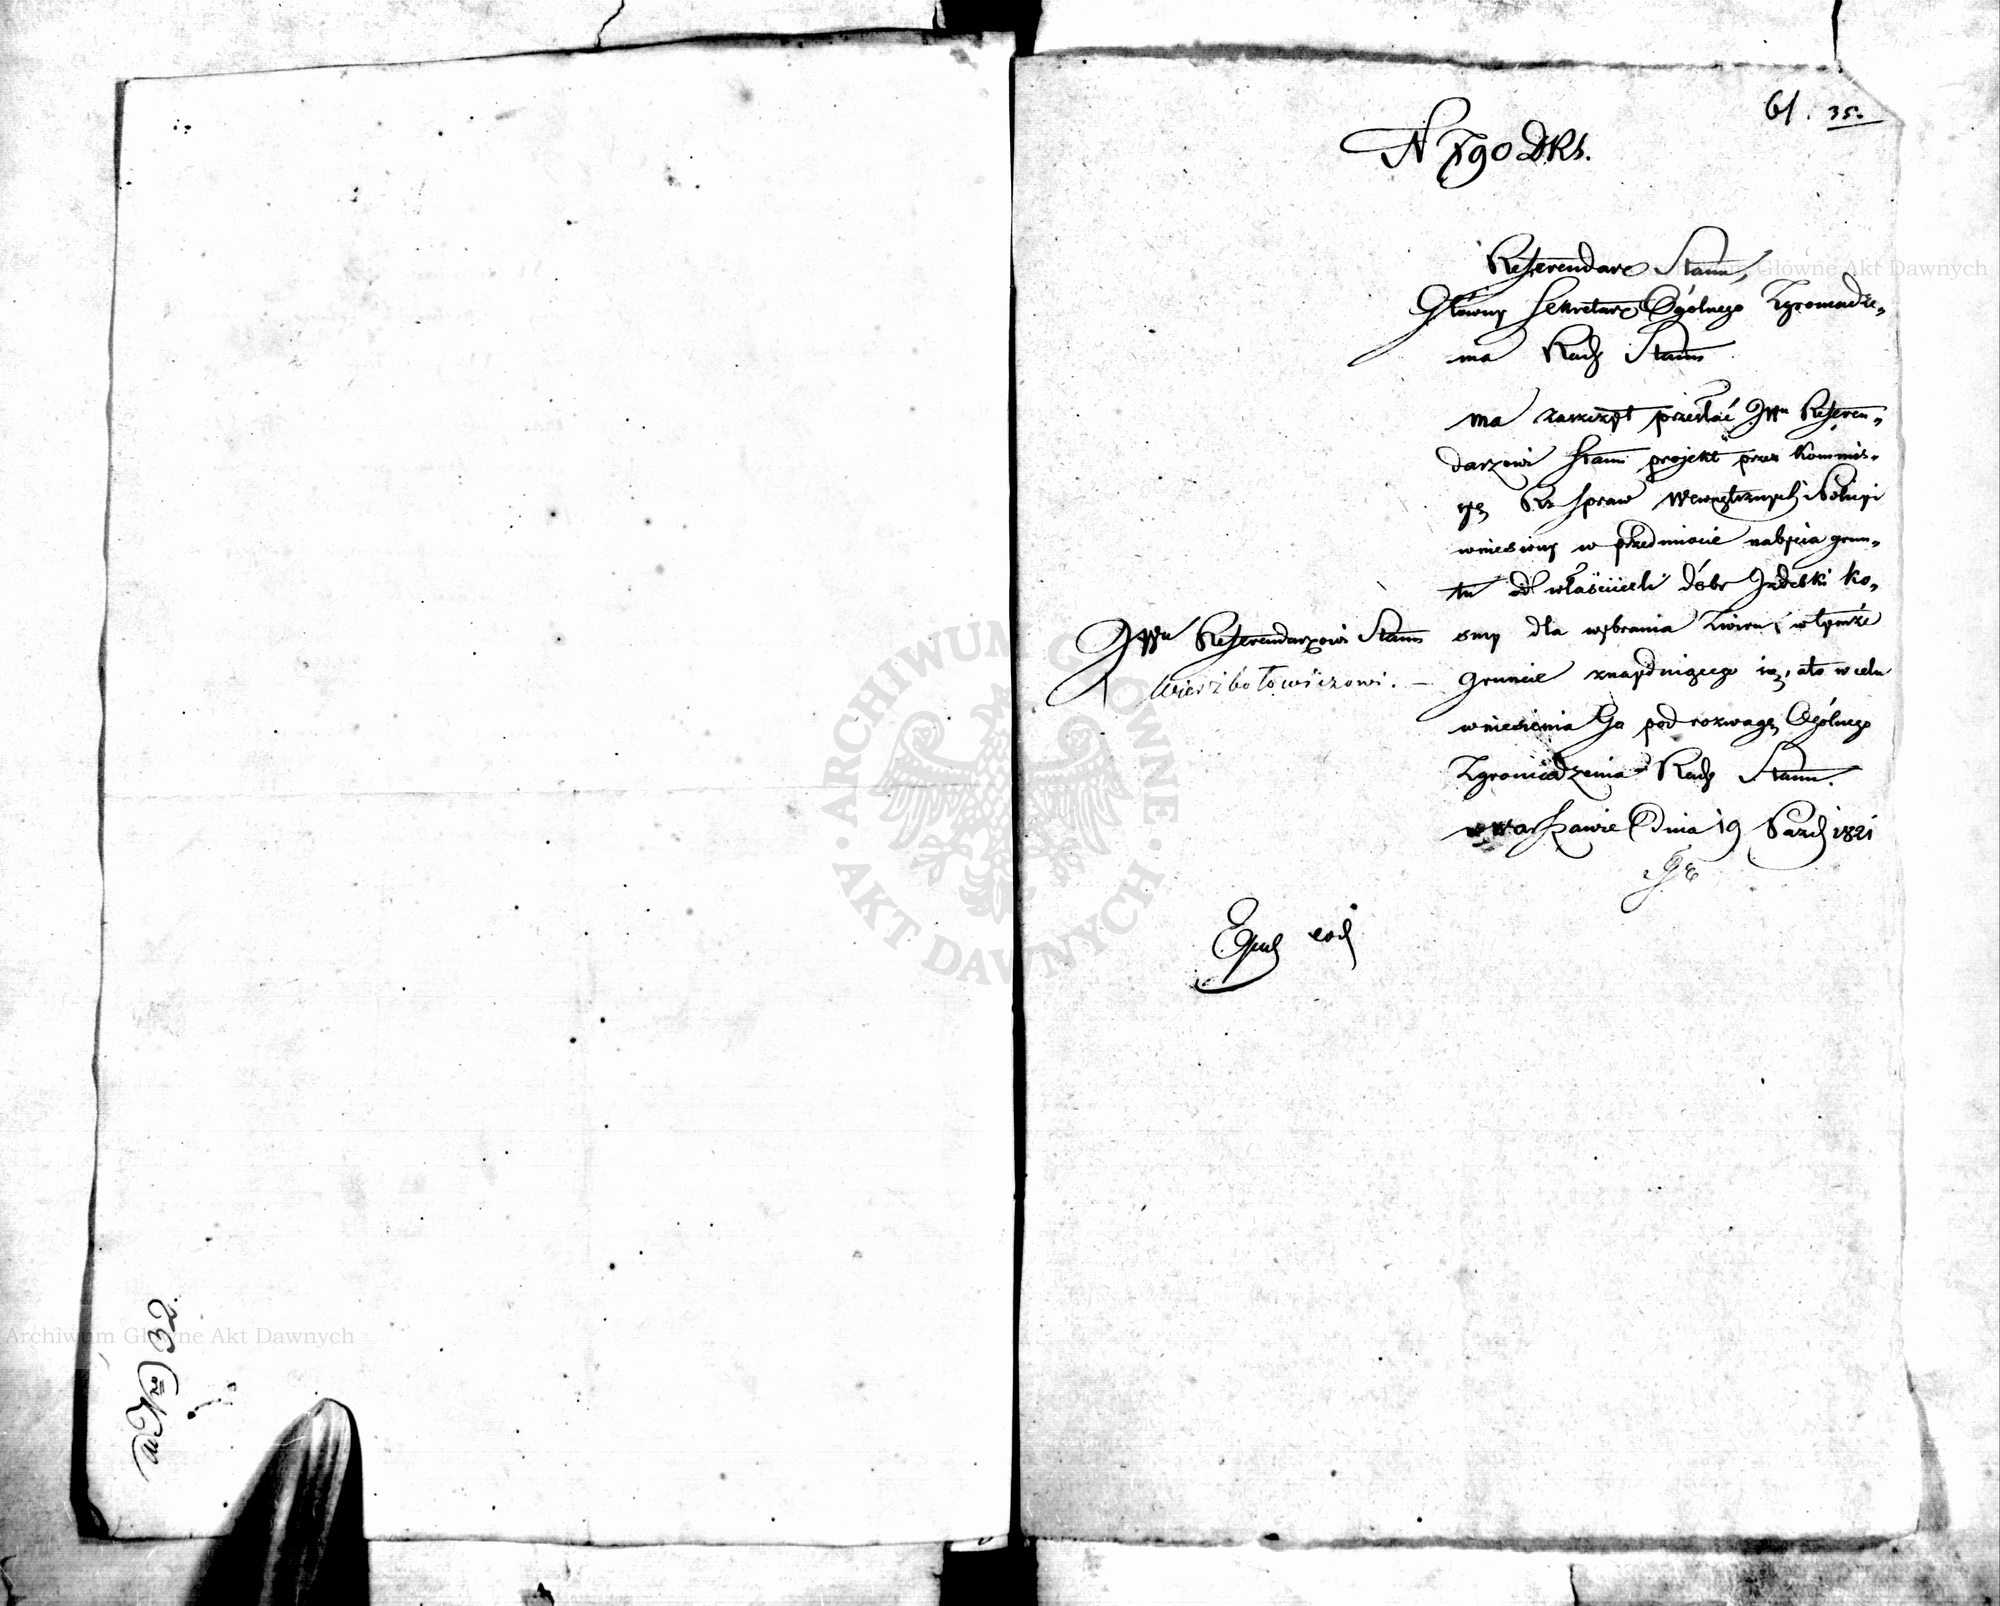 ad Nro 32.
61. 35.
N 790 DRS.
Referendarz Stanu,
Główny Sekretarz Ogólnego Zgromadze„
nia Rady Stanu
ma zaszczyt przesłać JWu Referen„
darzowi Stanu projekt przez Kommis„
yę Rz Spraw Wewnętrznych i Policyi
wniesiony w przedmiocie nabycia grun„
tu od właścicieli dóbr Izdebki Ko„
smy dla wybrania żwiru, w tymże
JWu Referendarzowi Stanu
Wierzbołowiczowi. —
gruncie znajdującego się, a to w celu
wniesienia Go pod rozwagę Ogólnego
Zgromadzenia Rady Stanu.
w Warszawie Dnia 19 Paźd 1821
Exped eod
ARCHIWUM GŁÓWNE AKT DAWNYCH
Archiwum Główne Akt Dawnych
Archiwum Główne Akt Dawnych